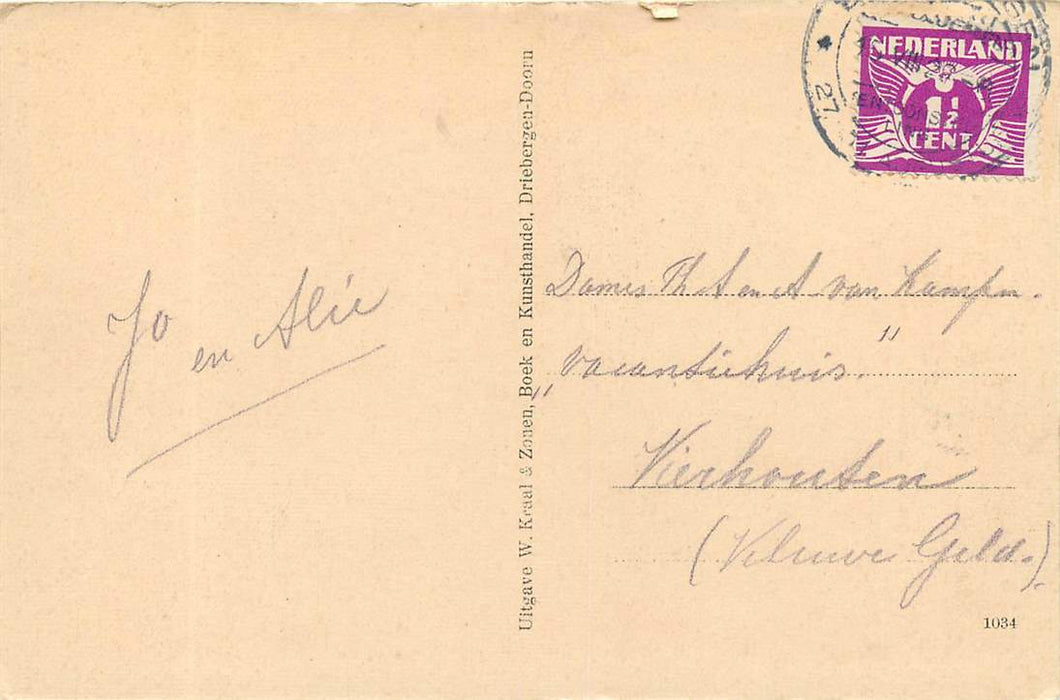 Jo
en Alie
Uitgave W. Kraal & Zonen, Boek en Kunsthandel, Driebergen-Doorn
NEDERLAND
1½
CENT
27
Dames Th. A en A. van Kampen.
„Vacantiehuis.”
Vierhouten
(Veluwe Geld.)
1034